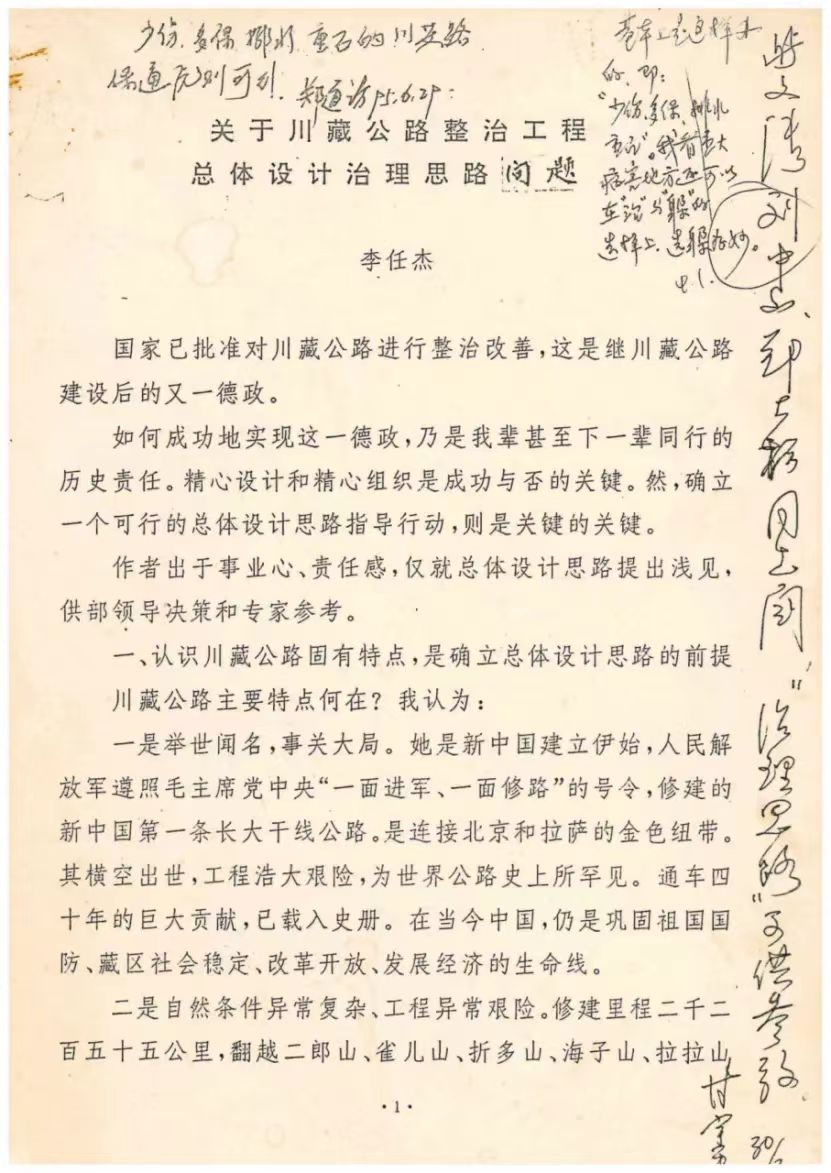 保通原则可行
95.6.29
关于川藏公路整治工程
总体设计治理思路问题
李任杰
国家已批准对川藏公路进行整治改善，这是继川藏公路
建设后的又一德政。
如何成功地实现这一德政，乃是我辈甚至下一辈同行的
历史责任。精心设计和精心组织是成功与否的关键。然，确立
一个可行的总体设计思路指导行动，则是关键的关键。
作者出于事业心、责任感，仅就总体设计思路提出浅见，
供部领导决策和专家参考。
一、认识川藏公路固有特点，是确立总体设计思路的前提
川藏公路主要特点何在？我认为：
一是举世闻名，事关大局。她是新中国建立伊始，人民解
放军遵照毛主席党中央“一面进军、一面修路”的号令，修建的
新中国第一条长大干线公路。是连接北京和拉萨的金色纽带。
其横空出世，工程浩大艰险，为世界公路史上所罕见。通车四
十年的巨大贡献，已载入史册。在当今中国，仍是巩固祖国国
防、藏区社会稳定、改革开放、发展经济的生命线。
二是自然条件异常复杂、工程异常艰险。修建里程二千二
百五十五公里，翻越二郎山、雀儿山、折多山、海子山、拉拉山
·1·
此文请 同志阅，“治理思路”可供参考